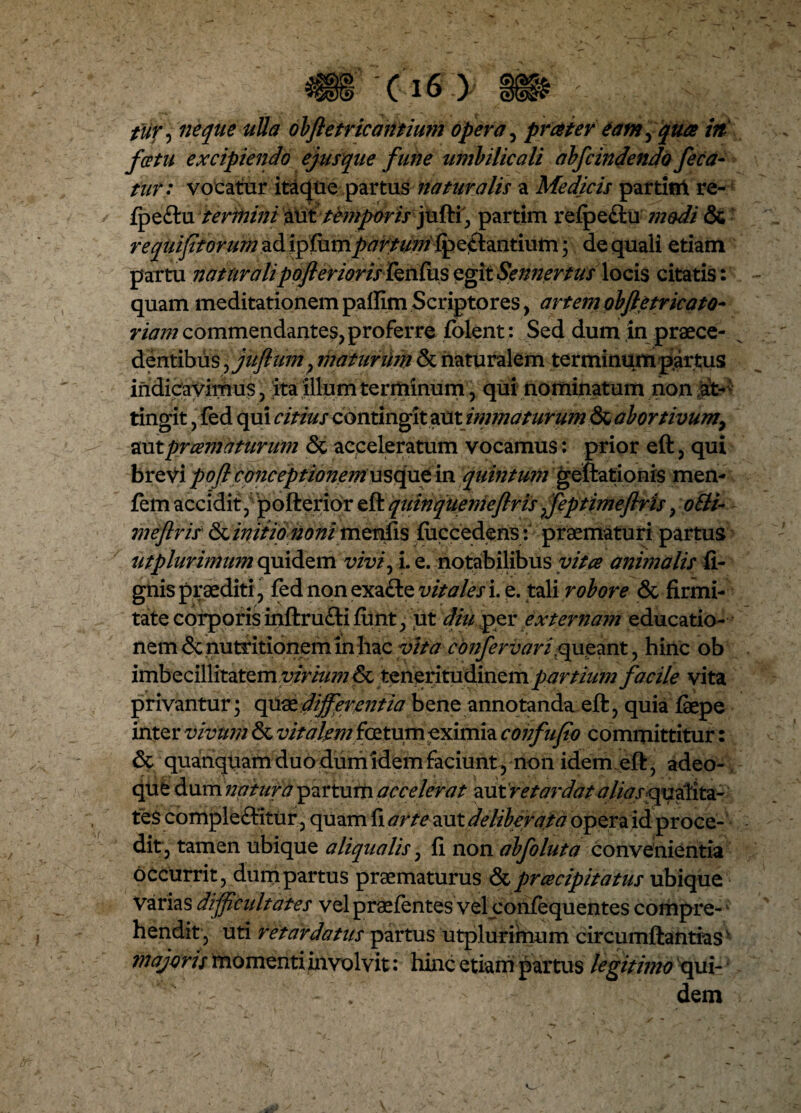 ( 16 )
tur, neque ulla obſtetricantium opera, præter eam, quæ in
fœtu excipiendo ejusque fune umbilicali abſcindendo ſeca-
tur: vocatur itaque partus naturalis a Medicis partim re-
ſpectu termini aut temporis juſti, partim reſpectu modi &
requiſitorum ad ipſum partum ſpectantium; de quali etiam
partu naturali poſterioris ſenſus egit Sennertus locis citatis:
quam meditationem paſſim Scriptores, artem obſtetricato-
riam commendantes, proferre ſolent: Sed dum in præce-
dentibus, juſtum, maturum & naturalem terminum partus
indicavimus, ita illum terminum, qui nominatum non at-
tingit, ſed qui citius contingit aut immaturum & abortivum,
aut præmaturum & acceleratum vocamus: prior eſt, qui
brevi poſt conceptionem usque in quintum geſtationis men-
ſem accidit, poſterior eſt quinquemeſtris, ſeptimeſtris, octi-
meſtris & initio noni menſis ſuccedens: præmaturi partus
utplurimum quidem vivi, i. e. notabilibus vitæ animalis ſi-
gnis præditi, ſed non exacte vitales i. e. tali robore & firmi-
tate corporis inſtructi ſunt, ut diu per externam educatio-
nem & nutritionem in hac vita conſervari queant, hinc ob
imbecillitatem virium & teneritudinem partium facile vita
privantur; quæ differentia bene annotanda eſt, quia ſæpe
inter vivum & vitalem fœtum eximia confuſio committitur:
& quanquam duo dum idem faciunt, non idem eſt, adeo-
que dum natura partum accelerat aut retardat alias qualita-
tes complectitur, quam ſi arte aut deliberata opera id proce-
dit, tamen ubique aliqualis, ſi non abſoluta convenientia
occurrit, dum partus præmaturus & præcipitatus ubique
varias difficultates vel præſentes vel conſequentes compre-
hendit, uti retardatus partus utplurimum circumſtantias
majoris momenti involvit: hinc etiam partus legitimo qui-
dem